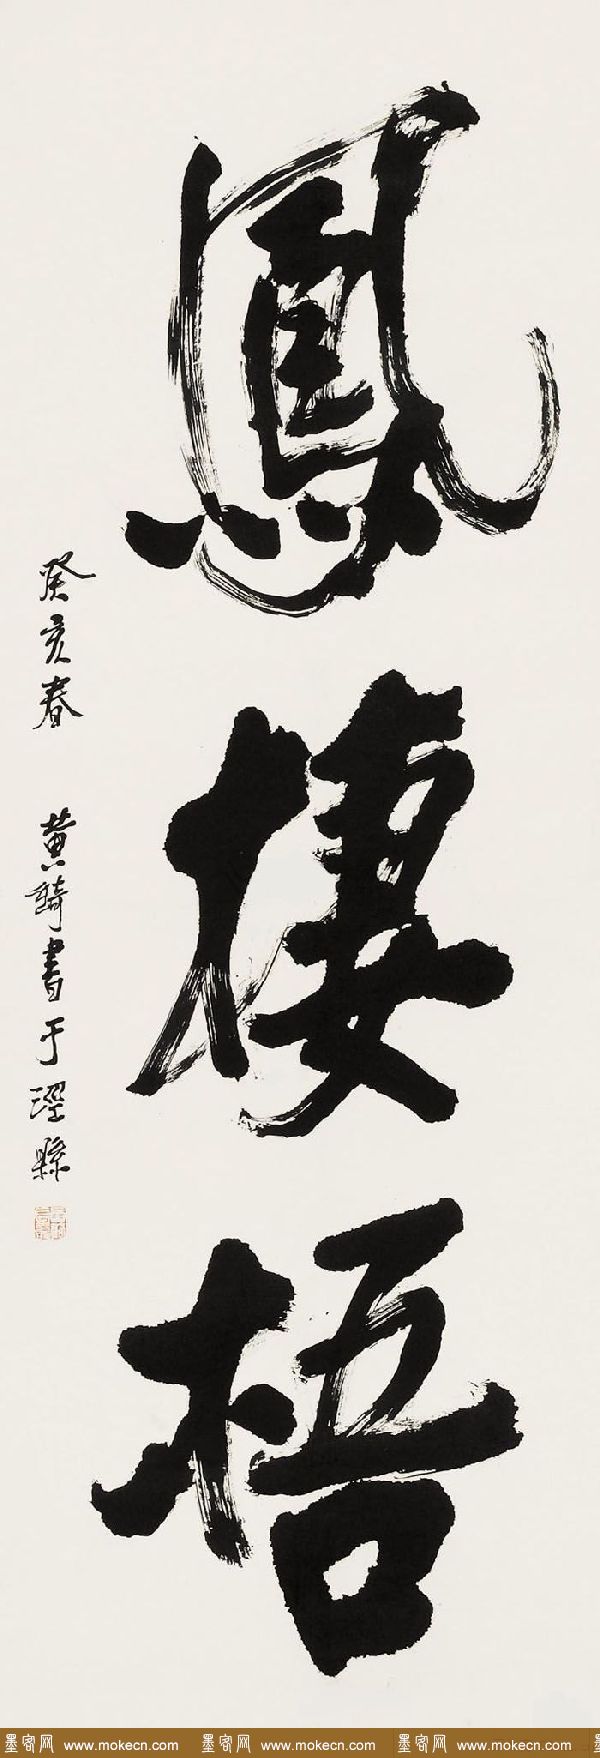 鳳棲梧
癸亥春 黄綺書于涇縣
墨客网 www.mokecn.com 墨客网 www.mokecn.com 墨客网 www.mokecn.com